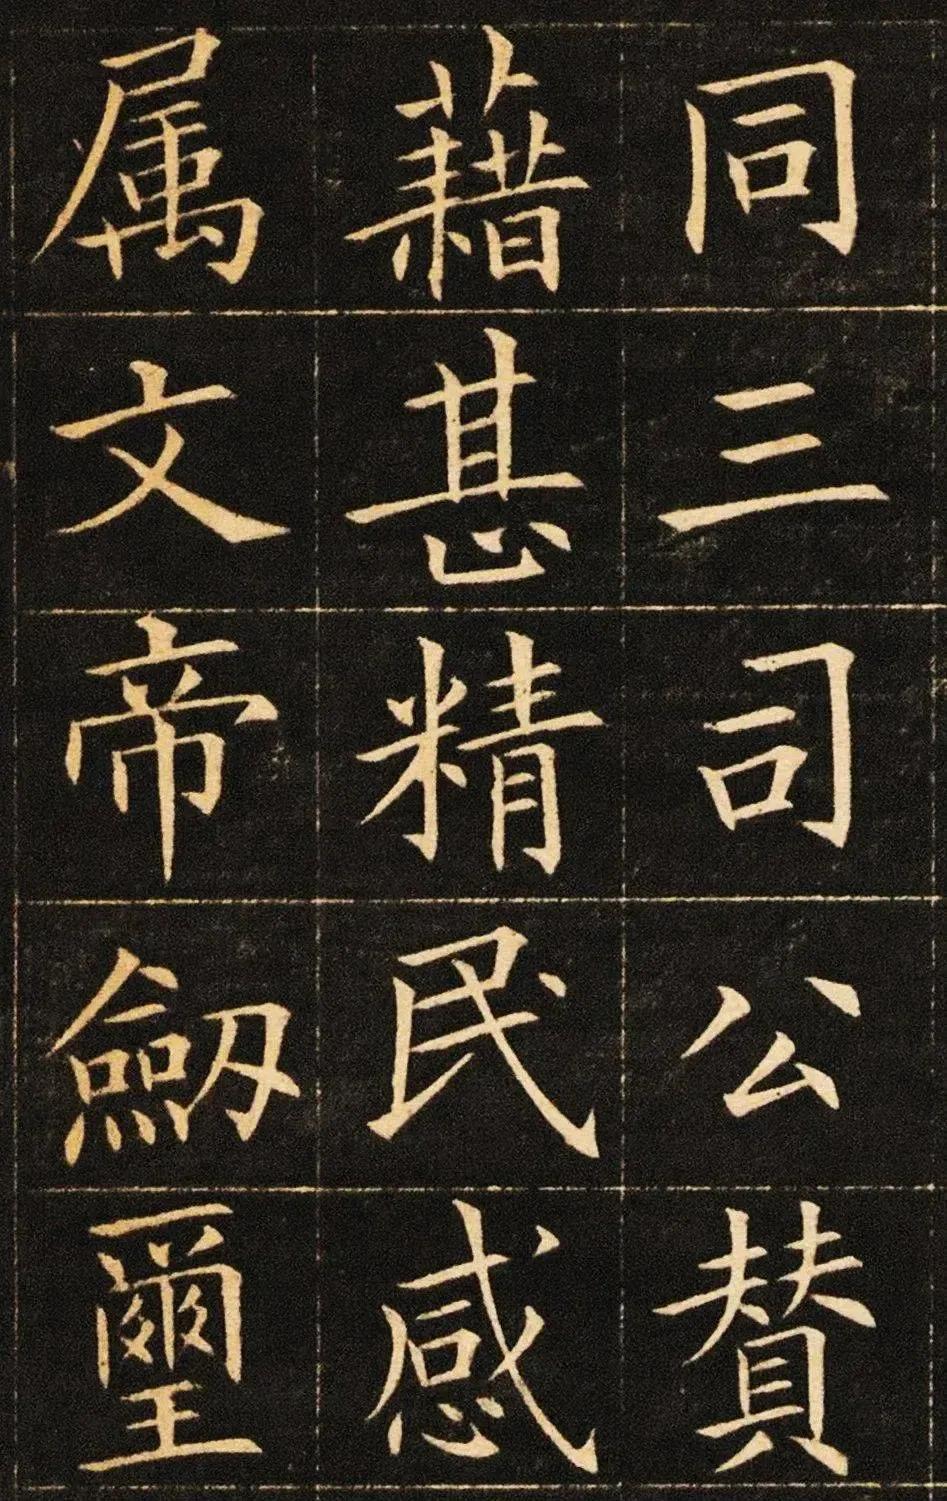 同三司公賛
藉甚精民感
属文帝劒璽